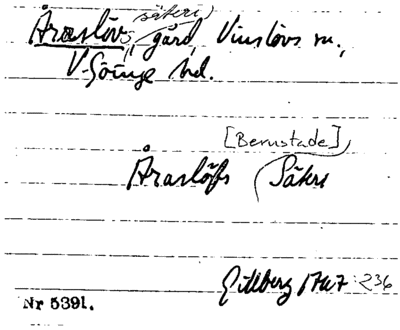 Åraslövs säteri, gård, Vinslövs sn.,
V. Göinge hd.
[Bernstade]
Åraslöfs Säteri
Gillberg 1767 236
Nr 5391.